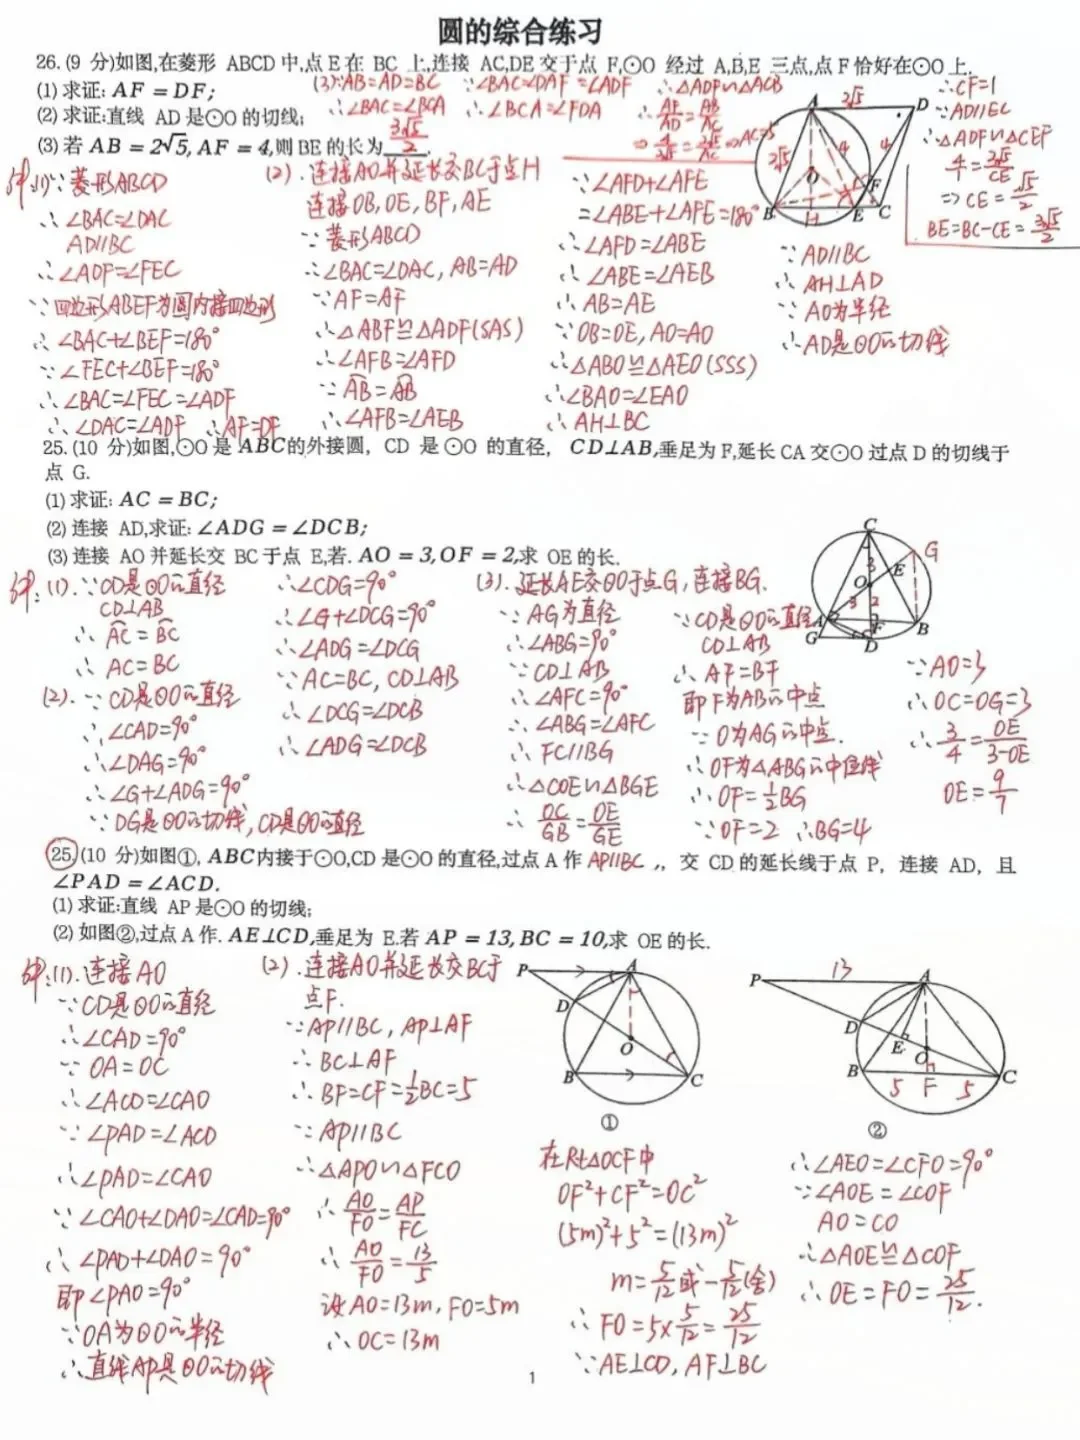 圆的综合练习
26.(9 分)如图,在菱形 ABCD 中,点 E 在 BC 上,连接 AC,DE 交于点 F,⊙O 经过 A,B,E 三点,点 F 恰好在⊙O 上.
(1) 求证: AF = DF;
(2) 求证:直线 AD 是⊙O 的切线;
(3) 若 AB = 2√5, AF = 4,则 BE 的长为 3√5/2 .
解(1)∵菱形ABCD
∴∠BAC=∠DAC
AD∥BC
∴∠ADF=∠FEC
∵四边形ABEF为圆内接四边形
∴∠BAC+∠BEF=180°
∵∠FEC+∠BEF=180°
∴∠BAC=∠FEC=∠ADF
∴∠DAC=∠ADF ∴AF=DF
(2).连接AO并延长交BC于点H
连接OB,OE,BF,AE
∵菱形ABCD
∴∠BAC=∠DAC, AB=AD
∵AF=AF
∴△ABF≌△ADF(SAS)
∴∠AFB=∠AFD
∵AB=AB
∴∠AFB=∠AEB
∵∠AFD+∠AFE
=∠ABE+∠AFE=180°
∴∠AFD=∠ABE
∴∠ABE=∠AEB
∴AB=AE
∵OB=OE,AO=AO
∴△ABO≌△AEO(SSS)
∴∠BAO=∠EAO
∴AH⊥BC
∵AD∥BC
∴AH⊥AD
∵AO为半径
∴AD是⊙O的切线
(3)∵AB=AD=BC
∴∠BAC=∠BCA
∵∠BAC=∠DAF=∠ADF
∴∠BCA=∠FDA
∴△ADF∽△ACB
∴AF/AD=AB/AC
⇒4/2√5=2√5/AC⇒AC=5
∴CF=1
∵AD∥EC
∴△ADF∽△CEF
4=2√5/CE
⇒CE=√5/2
BE=BC-CE=3√5/2
A 2√5 D
2√5 4 4
O F
B H E C
25.(10 分)如图,⊙O 是 ABC的外接圆, CD 是⊙O 的直径, CD⊥AB,垂足为 F,延长 CA 交⊙O 过点 D 的切线于
点 G.
(1) 求证: AC = BC;
(2) 连接 AD,求证: ∠ADG = ∠DCB;
(3) 连接 AO 并延长交 BC 于点 E,若. AO = 3, OF = 2,求 OE 的长.
解:(1).∵CD是⊙O的直径
CD⊥AB
∴AC=BC
∴AC=BC
(2).∵CD是⊙O的直径
∴∠CAD=90°
∴∠DAG=90°
∴∠G+∠ADG=90°
∵DG是⊙O的切线,CD是⊙O的直径
∴∠CDG=90°
∴∠G+∠DCG=90°
∴∠ADG=∠DCG
∵AC=BC,CD⊥AB
∴∠DCG=∠DCB
∴∠ADG=∠DCB
(3).延长AE交⊙O于点G,连接BG.
∵AG为直径
∴∠ABG=90°
∵CD⊥AB
∴∠AFC=90°
∴∠ABG=∠AFC
∴FC∥BG
∴△COE∽△BGE
∴OC/GB=OE/GE
∵CD是⊙O的直径
CD⊥AB
∴AF=BF
即F为AB的中点
∵O为AG的中点.
∴OF为△ABG的中位线
∴OF=½BG
∵OF=2 ∴BG=4
∵AO=3
∴OC=OG=3
∴3/4=OE/3-OE
OE=9/7
C
G
3 E
O
3 2
A F B
G D
25.(10 分)如图①, ABC内接于⊙O,CD 是⊙O 的直径,过点 A 作 AP∥BC ,, 交 CD 的延长线于点 P, 连接 AD, 且
∠PAD = ∠ACD.
(1) 求证:直线 AP 是⊙O 的切线;
(2) 如图②,过点 A 作. AE⊥CD,垂足为 E.若 AP = 13, BC = 10,求 OE 的长.
解:(1).连接AO
∵CD是⊙O的直径
∴∠CAD=90°
∵OA=OC
∴∠ACO=∠CAO
∵∠PAD=∠ACO
∴∠PAD=∠CAO
∵∠CAO+∠DAO=∠CAD=90°
∴∠PAD+∠DAO=90°
即∠PAO=90°
∵OA为⊙O的半径
∴直线AP是⊙O的切线
(2).连接AO并延长交BC于
点F.
∵AP∥BC,AP⊥AF
∴BC⊥AF
∴BF=CF=½BC=5
∵AP∥BC
∴△APO∽△FCO
∴AO/FO=AP/FC
∴AO/FO=13/5
设AO=13m,FO=5m
∴OC=13m
P A
D
O
B C
①
P 13 A
D
E O
B 5 F 5 C
②
在Rt△OCF中
OF²+CF²=OC²
(5m)²+5²=(13m)²
m=5/12或-5/12(舍)
∴FO=5×5/12=25/12
∵AE⊥CD,AF⊥BC
∴∠AEO=∠CFO=90°
∵∠AOE=∠COF
AO=CO
∴△AOE≌△COF
∴OE=FO=25/12.
1